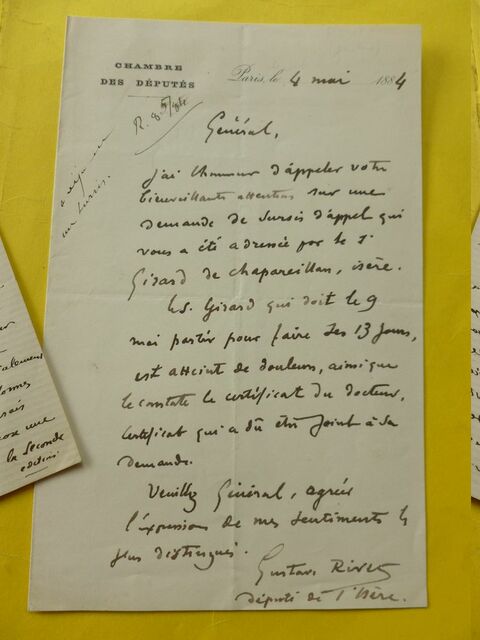 CHAMBRE
DES DÉPUTÉS
Paris, le 4 mai 1884
R. 8/5/84
Général,
J'ai l'honneur d'appeler votre
bienveillante attention sur une
demande de sursis d'appel qui
vous a été adressée par le Sr
Girard de Chapareillan, isère.
Le S. Girard qui doit le 9
mai partir pour faire ses 13 jours,
est atteint de douleurs, ainsi que
le constate le certificat du docteur,
certificat qui a dû être joint à sa
demande.
Veuillez Général, agréer
l'expression de mes sentiments les
plus distingués.
Gustave Rivet
député de l'Isère.
une
la seconde